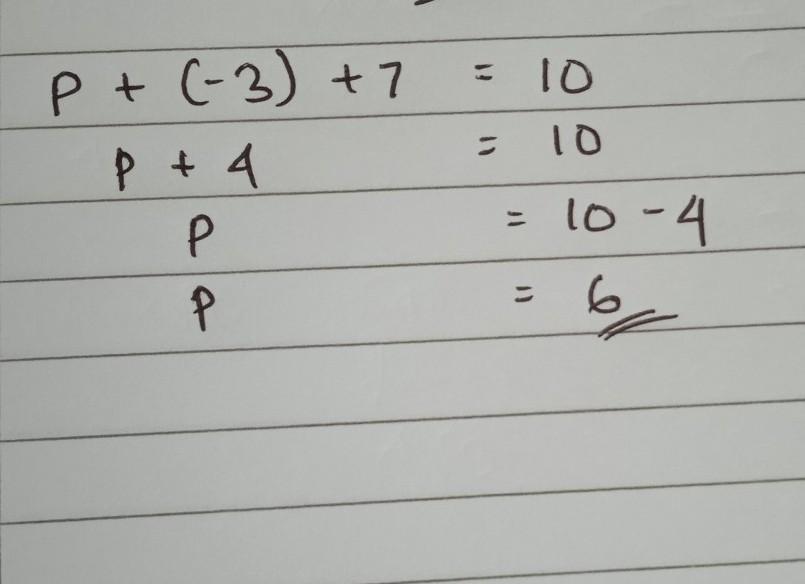 p + (-3) + 7 = 10
p + 4 = 10
p = 10 - 4
p = 6